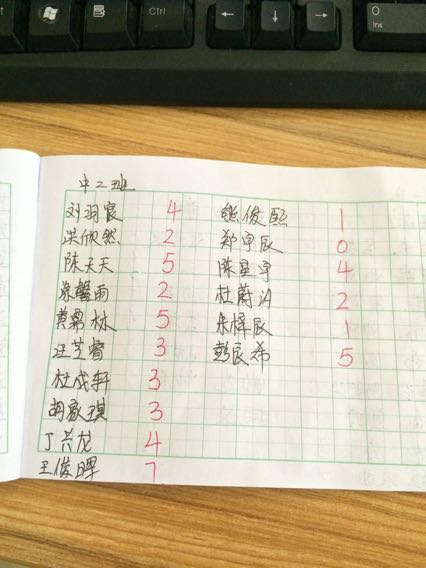 Ctrl
←
↓
→
0
Ins
中二班
刘羽宸 4
洪欣然 2
陈天天 5
涂馨雨 2
黄翯林 5
汪芝睿 3
杜成轩 3
胡家琪 3
丁兴龙 4
王俊晖 7
熊俊熙 1
郑宇辰 0
陈星宇 4
杜蔚汐 2
朱梓辰 1
彭宸希 5